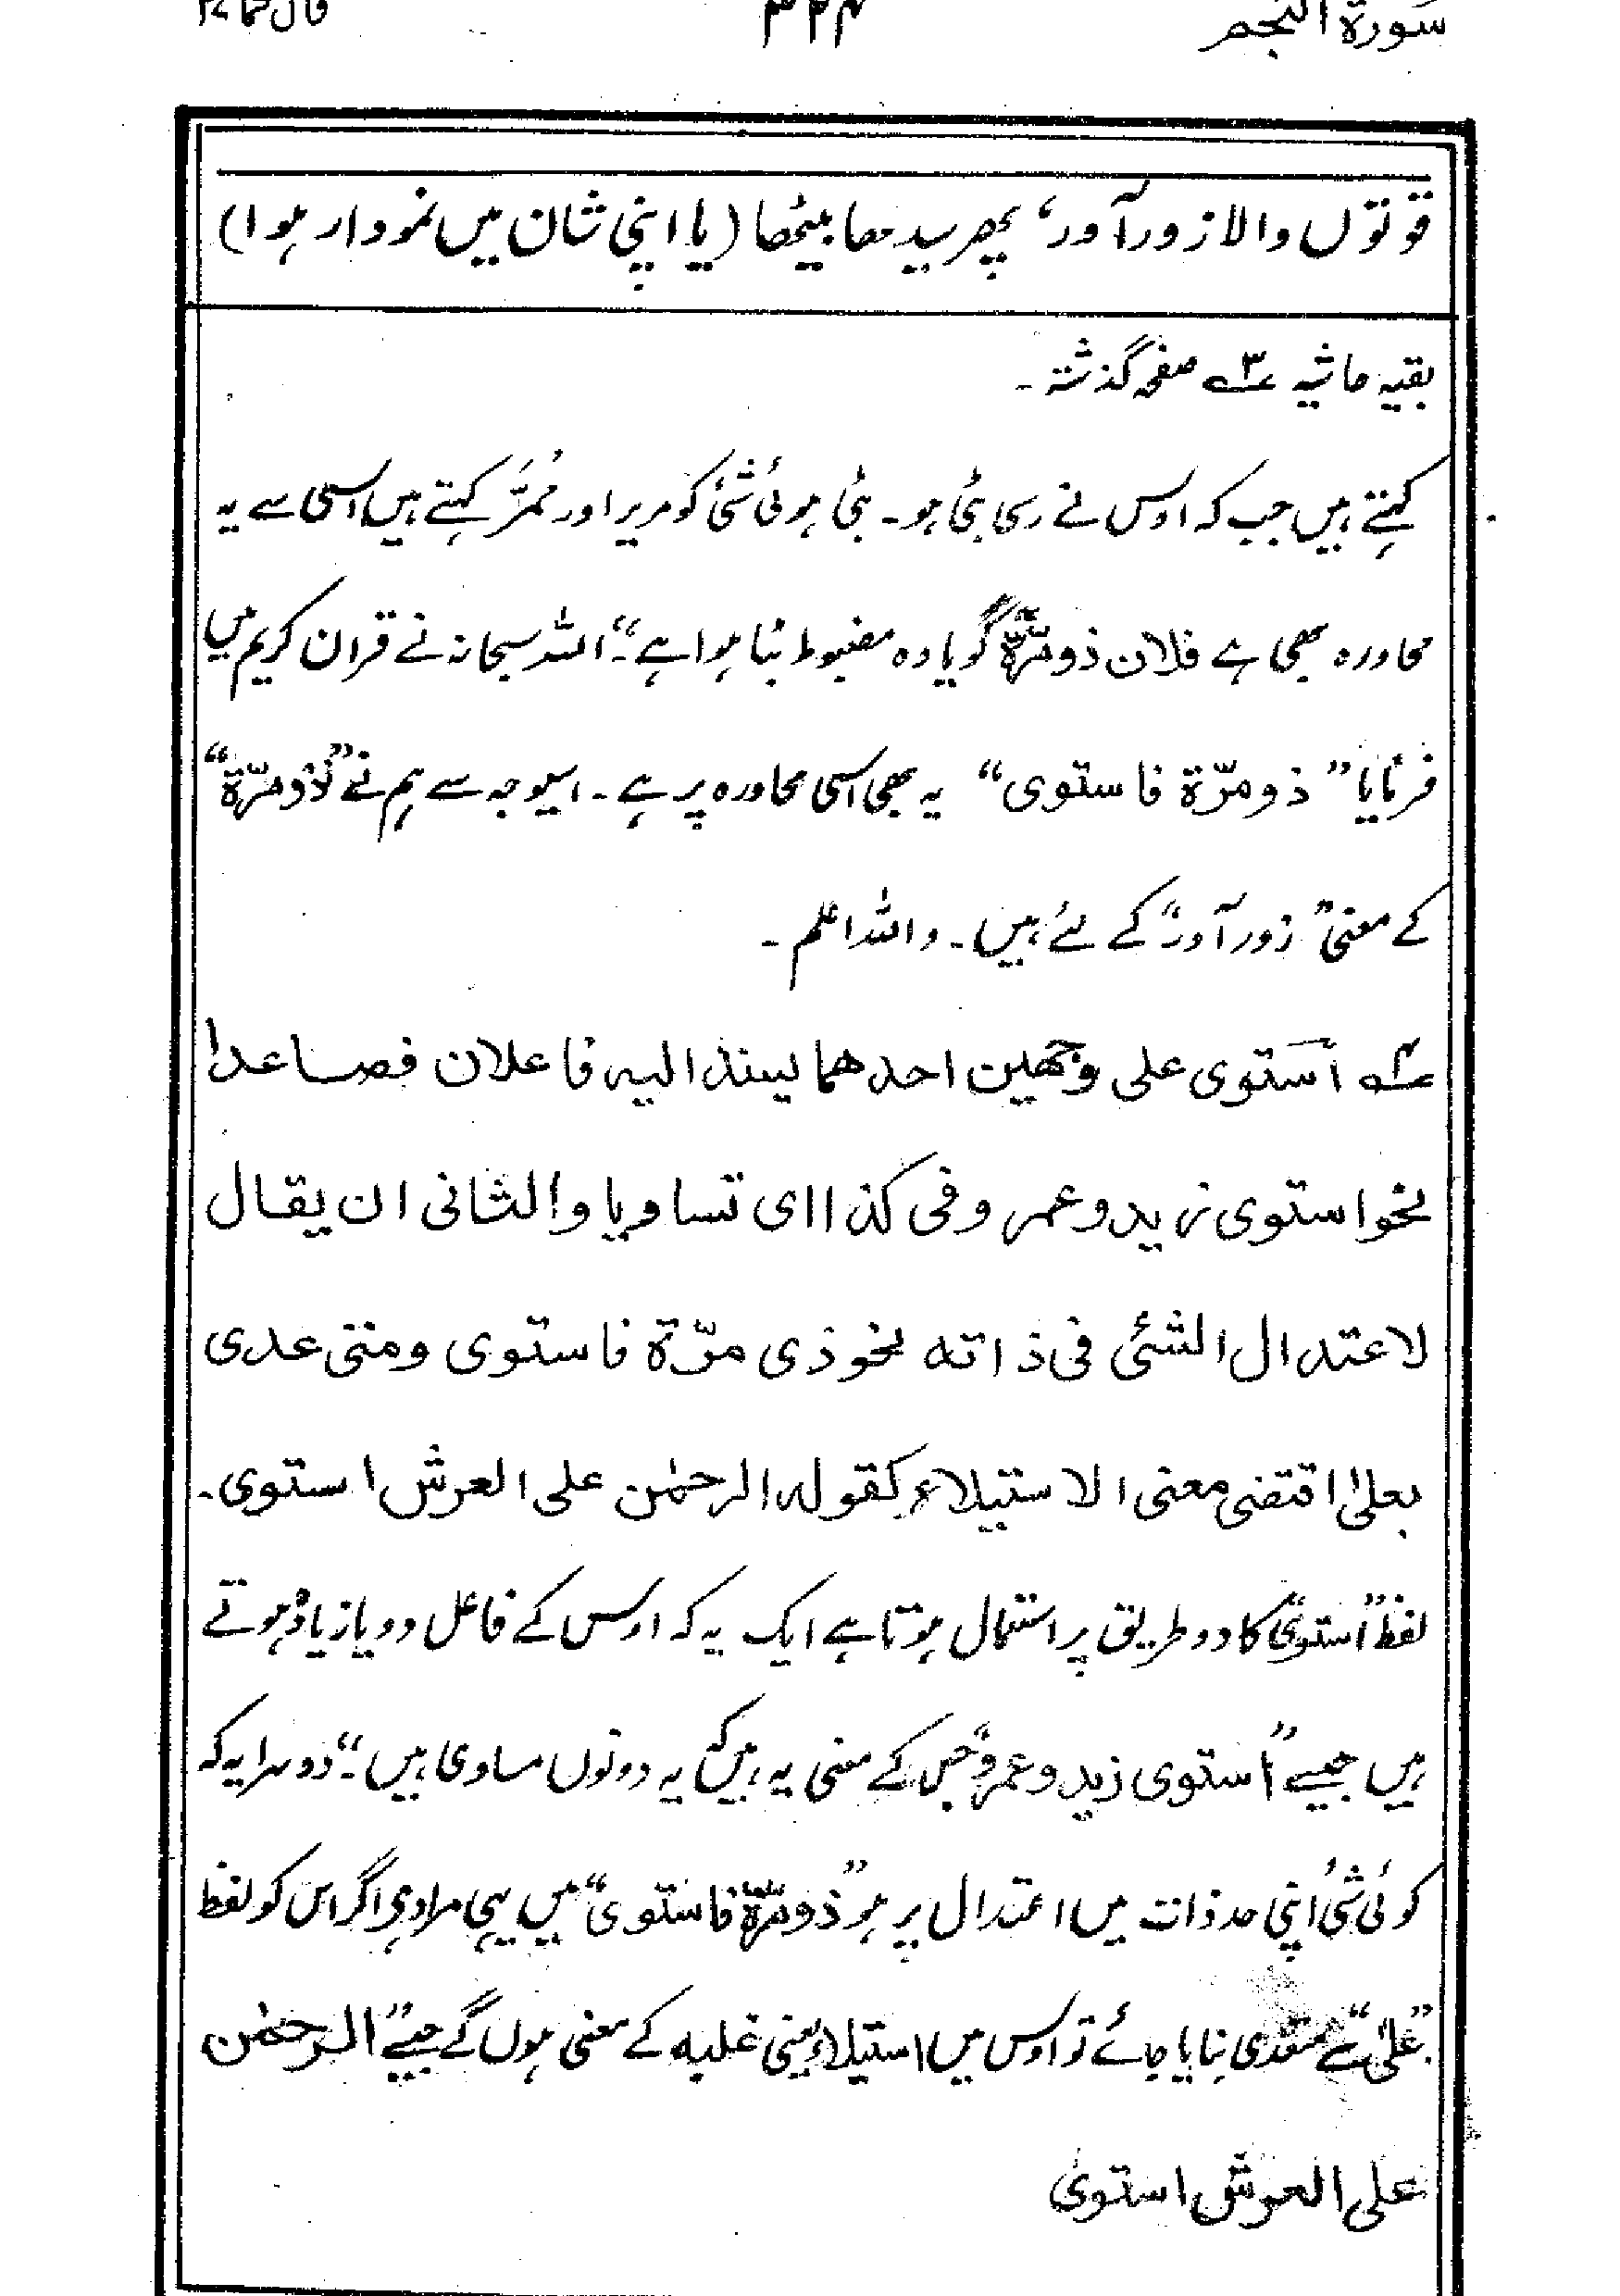 سورۃ النجم ۳۲۴ قال فما ۲۷
قوتوں والا زورآور، پھر سیدھا بیٹھا (یا اپنی شان میں نمودار ہوا)
بقیہ حاشیہ ۳؎ صفحہ گذشتہ۔
کہتے ہیں جب کہ اوس نے رسی بٹی ہو۔ بٹی ہوئی شئ کو مریر اور مُمَرّ کہتے ہیں اسی سے یہ
محاورہ بھی ہے فلان ذومرّۃ گویا وہ مضبوط بٹا ہوا ہے“۔ اللہ سبحانہ نے قران کریم میں
فرمایا ”ذومرّۃ فاستوی“ یہ بھی اسی محاورہ پر ہے۔ اسیوجہ سے ہم نے ”ذومرّۃ“
کے معنی ”زورآور“ کے لئے ہیں۔ واللہ اعلم۔
۴؎ استوی علی وجھین احدھما یسند الیہ فاعلان فصاعدا
نحو استوی زید وعمر وفی کذا ای تساویا والثانی ان یقال
لاعتدال الشئی فی ذاتہ نحو ذی مرّۃ فاستوی ومتی عدی
بعلیٰ اقتضی معنی الاستیلاء کقولہ الرحمٰن علی العرش استوی۔
لفظ ”استوی“ کا دو طریق پر استعمال ہوتا ہے ایک یہ کہ اوس کے فاعل دو یا زیادہ ہوتے
ہیں جیسے ”استوی زید وعمرو“ جس کے معنی یہ ہیں کہ ”یہ دونوں مساوی ہیں“۔ دوسرا یہ کہ
کوئی شئ اپنی حد ذات میں اعتدال پر ہو ”ذومرّۃ فاستوی“ میں یہی مراد ہی اگر اس کو لفظ
”علیٰ“ سے متعدی بنایا جائے تو اوس میں استیلاء یعنی غلبہ کے معنی ہوں گے جیسے ”الرحمٰن
علی العرش استویٰ